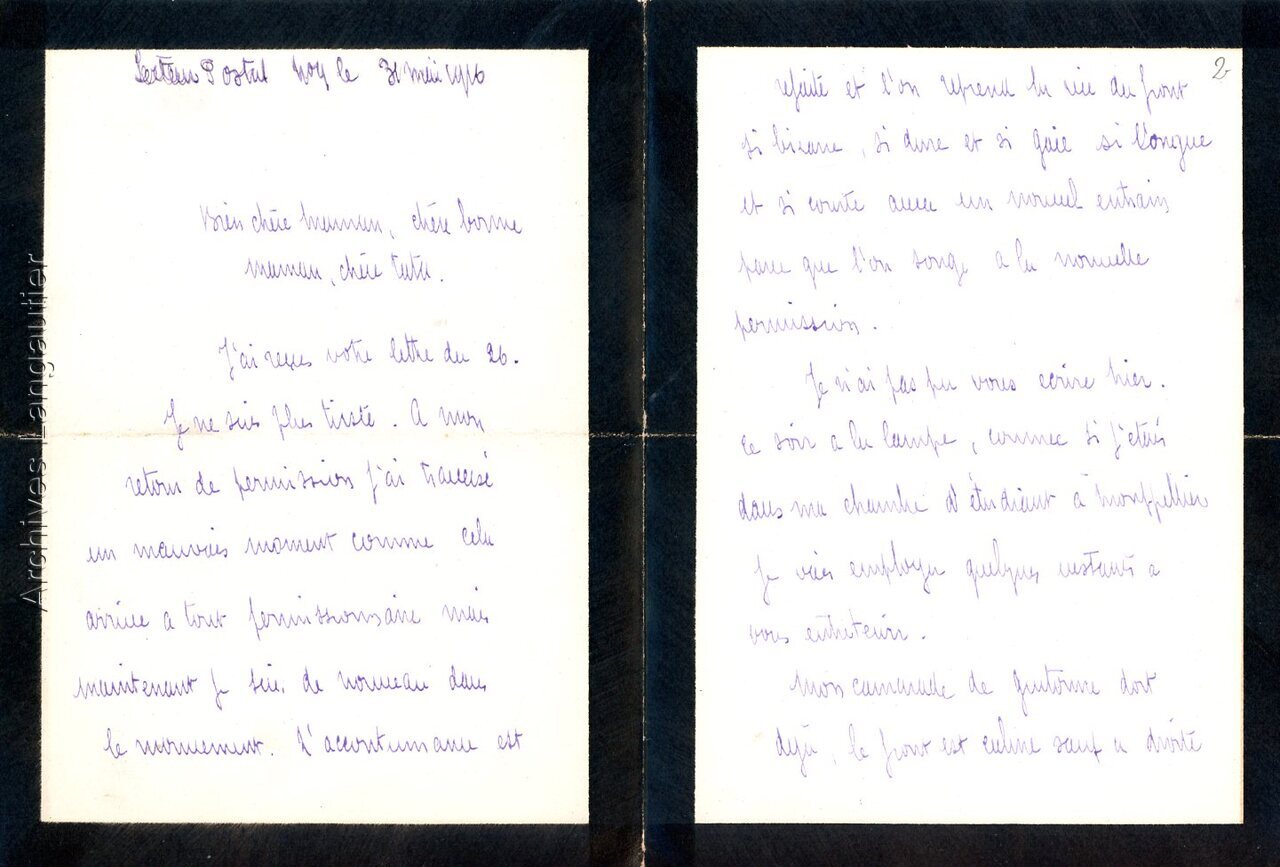 Secteur Postal le 31 mai 1916
Bien chère maman, chère bonne
maman, chère tata.
J'ai reçus votre lettre du 26.
Je ne suis plus triste. A mon
retour de permission j'ai traversé
un mauvais moment comme cela
arrive a tout permissionnaire mais
maintenant je suis de nouveau dans
le mouvement. L'accoutumance est
2
refaite et l'on reprend la vie du front
si bizarre, si dure et si gaie si longue
et si courte avec un nouvel entrain
parce que l'on songe a la nouvelle
permission.
Je n'ai pas pu vous ecrire hier.
ce soir a la lampe, comme si j'étais
dans ma chambre d'étudiant à Montpellier
Je vais employer quelques instants a
vous entretenir.
Mon camarade de guitoune dort
déjà, le front est calme sauf a droite
Archives Langautier